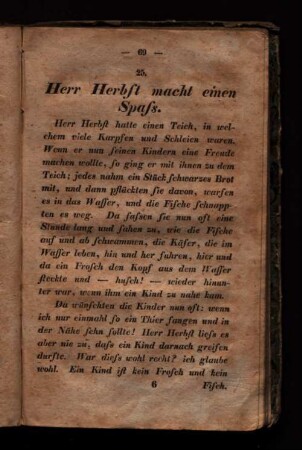 — 69 —
25.
Herr Herbſt macht einen
Spaſs.
Herr Herbſt hatte einen Teich, in wel-
chem viele Karpfen und Schleien waren.
Wenn er nun ſeinen Kindern eine Freude
machen wollte, ſo ging er mit ihnen zu dem
Teich; jedes nahm ein Stück ſchwarzes Brot
mit, und dann pflückten ſie davon, warfen
es in das Waſſer, und die Fiſche ſchnapp-
ten es weg. Da ſaſsen ſie nun oft eine
Stunde lang und ſahen zu, wie die Fiſche
auf und ab ſchwammen, die Käfer, die im
Waſſer leben, hin und her fuhren, hier und
da ein Froſch den Kopf aus dem Waſſer
ſteckte und — huſch! — wieder hinun-
ter war, wenn ihm ein Kind zu nahe kam.
Da wünſchten die Kinder nun oft: wenn
ich nur einmahl ſo ein Thier fangen und in
der Nähe ſehn ſollte! Herr Herbſt lieſs es
aber nie zu, daſs ein Kind darnach greifen
durfte. War dieſs wohl recht? ich glaube
wohl. Ein Kind iſt kein Froſch und kein
6 Fiſch.